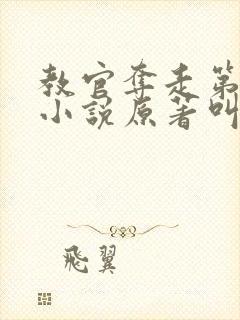 教官奪走第
小說原著叫
飛翼